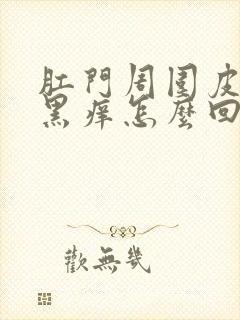 肛門周圍皮
黑痒怎麼回
歡無幾